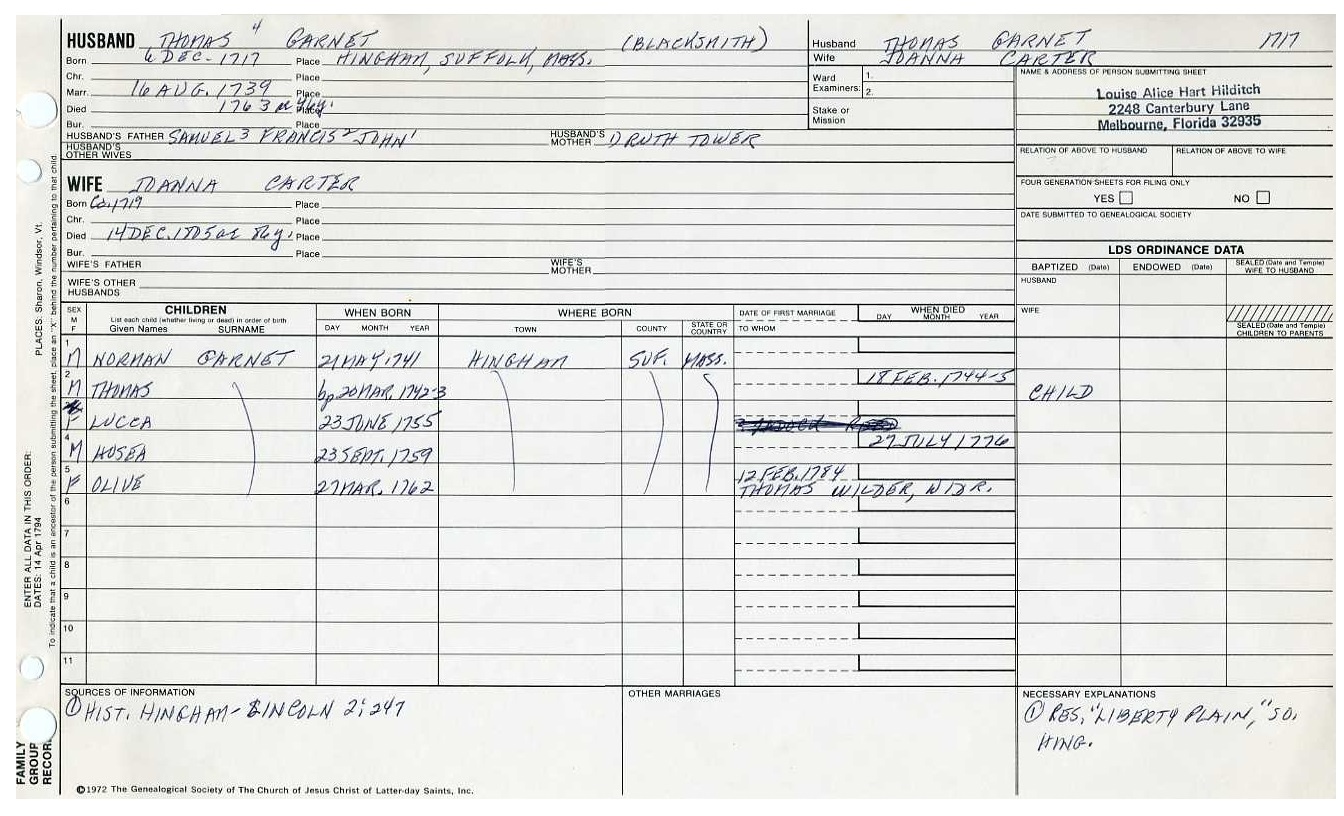 HUSBAND THOMAS 4 GARNET (BLACKSMITH)
Born 6 DEC. 1717 Place HINGHAM, SUFFOLK, MASS.
Chr. Place
Marr. 16 AUG. 1739 Place
Died 1763 Place
Bur. Place
HUSBAND'S FATHER SAMUEL 3 FRANCIS 2 JOHN 1 HUSBAND'S MOTHER RUTH TOWER
HUSBAND'S OTHER WIVES
WIFE JOANNA CARTER
Born Ca. 1719 Place
Chr. Place
Died 14 DEC. 1805 ae 86 y. Place
Bur. Place
WIFE'S FATHER WIFE'S MOTHER
WIFE'S OTHER HUSBANDS
Husband THOMAS GARNET 1717
Wife JOANNA CARTER
Ward Examiners: 1.
2.
Stake or Mission
NAME & ADDRESS OF PERSON SUBMITTING SHEET
Louise Alice Hart Hilditch
2248 Canterbury Lane
Melbourne, Florida 32935
RELATION OF ABOVE TO HUSBAND RELATION OF ABOVE TO WIFE
FOUR GENERATION SHEETS FOR FILING ONLY
YES NO
DATE SUBMITTED TO GENEALOGICAL SOCIETY
LDS ORDINANCE DATA
BAPTIZED (Date) ENDOWED (Date) SEALED (Date and Temple) WIFE TO HUSBAND
HUSBAND
WIFE
SEALED (Date and Temple) CHILDREN TO PARENTS
SEX M F
CHILDREN
List each child (whether living or dead) in order of birth
Given Names SURNAME
WHEN BORN
DAY MONTH YEAR
WHERE BORN
TOWN COUNTY STATE OR COUNTRY
DATE OF FIRST MARRIAGE
TO WHOM
WHEN DIED
DAY MONTH YEAR
1 M NORMAN GARNET 21 MAY 1741 HINGHAM SUF. MASS.
2 M THOMAS bp 20 MAR. 1742-3 18 FEB. 1744-5 CHILD
F LUCCA 23 JUNE 1755
4 M HOSEA 23 SEPT. 1759 27 JULY 1776
5 F OLIVE 27 MAR. 1762 12 FEB. 1784
THOMAS WILDER, WIDR.
6
7
8
9
10
11
SOURCES OF INFORMATION
① HIST. HINGHAM - LINCOLN 2:247
OTHER MARRIAGES
NECESSARY EXPLANATIONS
① RES. "LIBERTY PLAIN," SO.
HING.
©1972 The Genealogical Society of The Church of Jesus Christ of Latter-day Saints, Inc.
FAMILY
GROUP
RECORD
ENTER ALL DATA IN THIS ORDER:
DATES: 14 Apr 1794 PLACES: Sharon, Windsor, Vt.
To indicate that a child is an ancestor of the person submitting the sheet, place an "X" behind the number pertaining to that child.